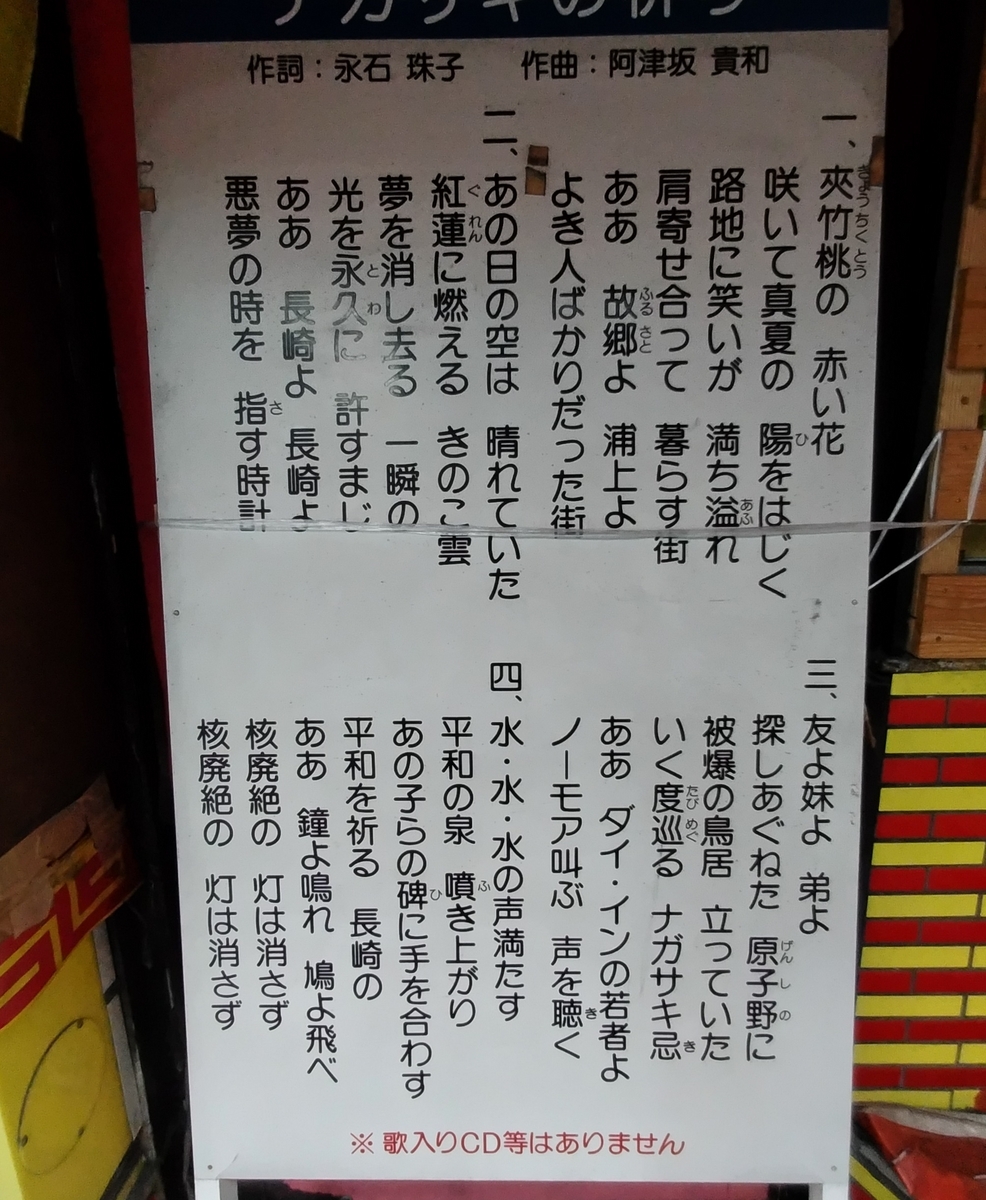 ナガサキの祈り
作詞：永石 珠子　作曲：阿津坂 貴和
一、夾竹桃の　赤い花
咲いて真夏の　陽をはじく
路地に笑いが　満ち溢れ
肩寄せ合って　暮らす街
ああ　故郷よ　浦上よ
よき人ばかりだった街
二、あの日の空は　晴れていた
紅蓮に燃える　きのこ雲
夢を消し去る　一瞬の
光を永久に　許すまじ
ああ　長崎よ　長崎よ
悪夢の時を　指す時計
三、友よ妹よ　弟よ
探しあぐねた　原子野に
被爆の鳥居　立っていた
いく度巡る　ナガサキ忌
ああ　ダイ・インの若者よ
ノーモア叫ぶ　声を聴く
四、水・水・水の声満たす
平和の泉　噴き上がり
あの子らの碑に手を合わす
平和を祈る　長崎の
ああ　鐘よ鳴れ　鳩よ飛べ
核廃絶の　灯は消さず
核廃絶の　灯は消さず
※ 歌入りCD等はありません